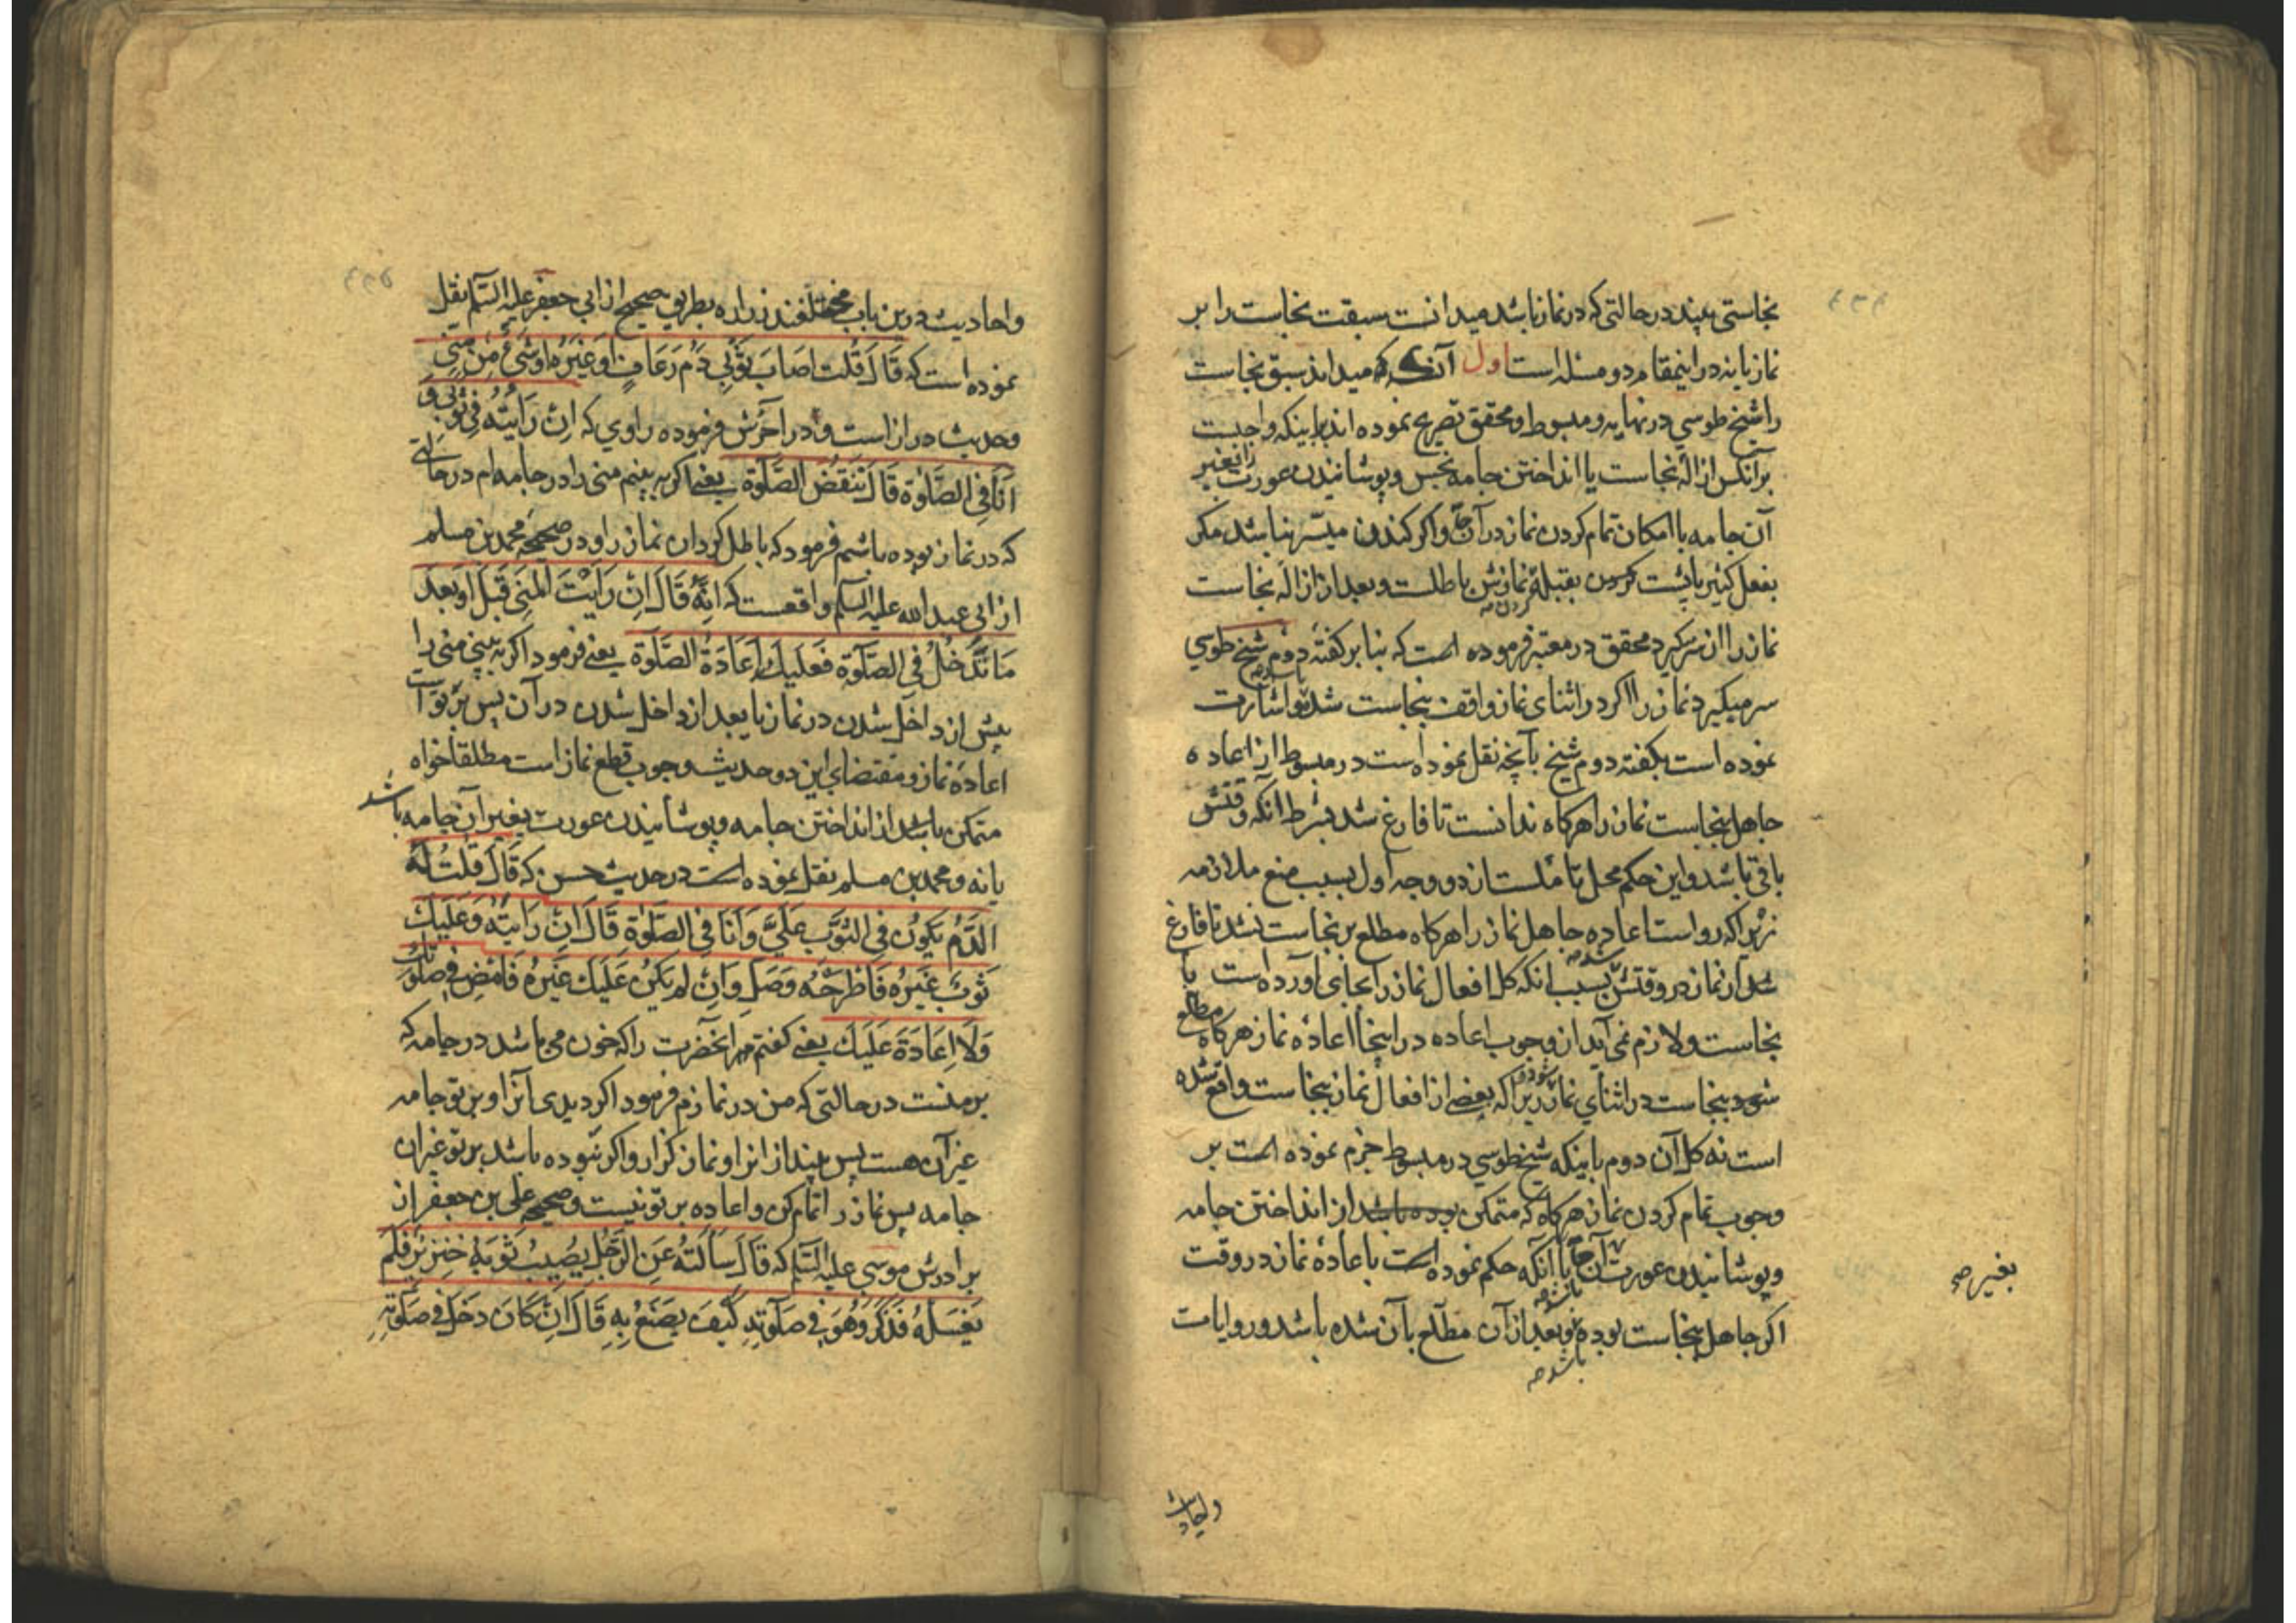 نجاستی بیند در حالتی که در نماز باشد میدانست سبقت نجاست را بر
نماز یا نه در اینمقام دو مسئله است اول آنکه میداند سبق نجاست
را شیخ طوسی در نهایه و مبسوط و محقق تصریح نموده اند باینکه واجبست
بر آنکس ازالهٔ نجاست یا انداختن جامه نجس و پوشانیدن عورت را بغیر
آن جامه با امکان تمام کردن نماز در آن و اگر کندن میسر نباشد مگر
بفعل کثیر یا پشت کردن بقبله نمازش باطلست و بعد از ازالهٔ نجاست
نماز را از سر گیرد محقق در معتبر فرموده است که بنا بر گفتهٔ دوم شیخ طوسی
سر میگیرد نماز را اگر در اثنای نماز واقف بنجاست شد و اشارت
نموده است بگفته دوم شیخ بآنچه نقل نموده است در مبسوط از اعاده
جاهل بنجاست نماز را هرگاه ندانست تا فارغ شد بشرط آنکه وقتش
باقی باشد و این حکم محل تاملست از دو وجه اول بسبب منع ملازمه
زیرا که رواست اعاده جاهل نماز را هرگاه مطلع بر نجاست نشد تا فارغ
شد از نماز در وقتش بسبب انکه کل افعال نماز را بجای آورده است با
نجاست و لازم نمی آید از وجوب اعاده در اینجا اعادهٔ نماز هرگاه مطلع
شود بنجاست در اثنای نماز زیرا که بعضی از افعال نماز بنجاست واقع شده
است نه کل آن دوم باینکه شیخ طوسی در مبسوط جزم نموده است بر
وجوب تمام کردن نماز هرگاه که متمکن بوده باشد از انداختن جامه
و پوشانیدن عورت با آنکه حکم نموده است باعادهٔ نماز در وقت
بغیر صح
اگر جاهل بنجاست بوده و بعد از آن مطلع بآن شده باشد و روایات
باشد صح
واحادیث
واحادیث درین باب مختلفند زراره بطریق صحیح از ابی جعفر علیه السلم نقل
نموده است که قَالَ قُلْتُ اَصَابَ ثَوْبِی دَمُ رَعَافٍ اَوْ غَیْرُهُ اَوْ شَیْءٌ مِنْ مَنِیٍّ
وحدیث دراز است و در آخرش فرموده راوی که اِنْ رَاَیْتُهُ فِی ثَوْبِی وَ
اَنَا فِی الصَّلوٰةِ قَالَ تَنْقُضُ الصَّلوٰةَ یعنی اگر به بینم منی را در جامه ام در حالتی
که در نماز بوده باشم فرمود که باطل گردان نماز را و در صحیحه محمد بن مسلم
از ابی عبد الله علیه السلم واقعست که اِنَّهُ قَالَ اِنْ رَاَیْتَ الْمَنِیَّ قَبْلُ اَوْ بَعْدَ
مَا تَدْخُلُ فِی الصَّلوٰةِ فَعَلَیْكَ اِعَادَةُ الصَّلوٰةِ یعنی فرمود اگر به بینی منی را
پیش از داخل شدن در نماز یا بعد از داخل شدن در آن پس بر تو است
اعادهٔ نماز و مقتضای این دو حدیث وجوب قطع نماز است مطلقا خواه
متمکن باشد از انداختن جامه و پوشانیدن عورت بغیر آن جامه باشد
یا نه و محمد بن مسلم نقل نموده است در حدیث حسن که قَالَ قُلْتُ لَهُ
الدَّمُ یَکُونُ فِی الثَّوْبِ عَلَیَّ وَاَنَا فِی الصَّلوٰةِ قَالَ اِنْ رَاَیْتَهُ وَعَلَیْكَ
ثَوْبٌ غَیْرُهُ فَاطْرَحْهُ وَصَلِّ وَاِنْ لَمْ یَکُنْ عَلَیْكَ غَیْرُهُ فَامْضِ فِی صَلوٰتِكَ
وَلَا اِعَادَةَ عَلَیْكَ یعنی گفتم مر آنحضرت را که خون می باشد در جامه که
بر منست در حالتی که من در نمازم فرمود اگر دیدی آنرا و بر تو جامه
غیر آن هست پس بینداز انرا و نماز گزار و اگر نبوده باشد بر تو غیر آن
جامه پس نماز را تمام کن و اعاده بر تو نیست و صحیحه علی بن جعفر از
برادرش موسی علیه السلم که قَالَ سَاَلْتُهُ عَنِ الرَّجُلِ یُصِیبُ ثَوْبَهُ خِنْزِیرٌ فَلَمْ
یَغْسِلْهُ فَذَکَرَ وَهُوَ فِی صَلوٰتِهِ کَیْفَ یَصْنَعُ بِهِ قَالَ اِنْ کَانَ دَخَلَ فِی صَلوٰتِهِ